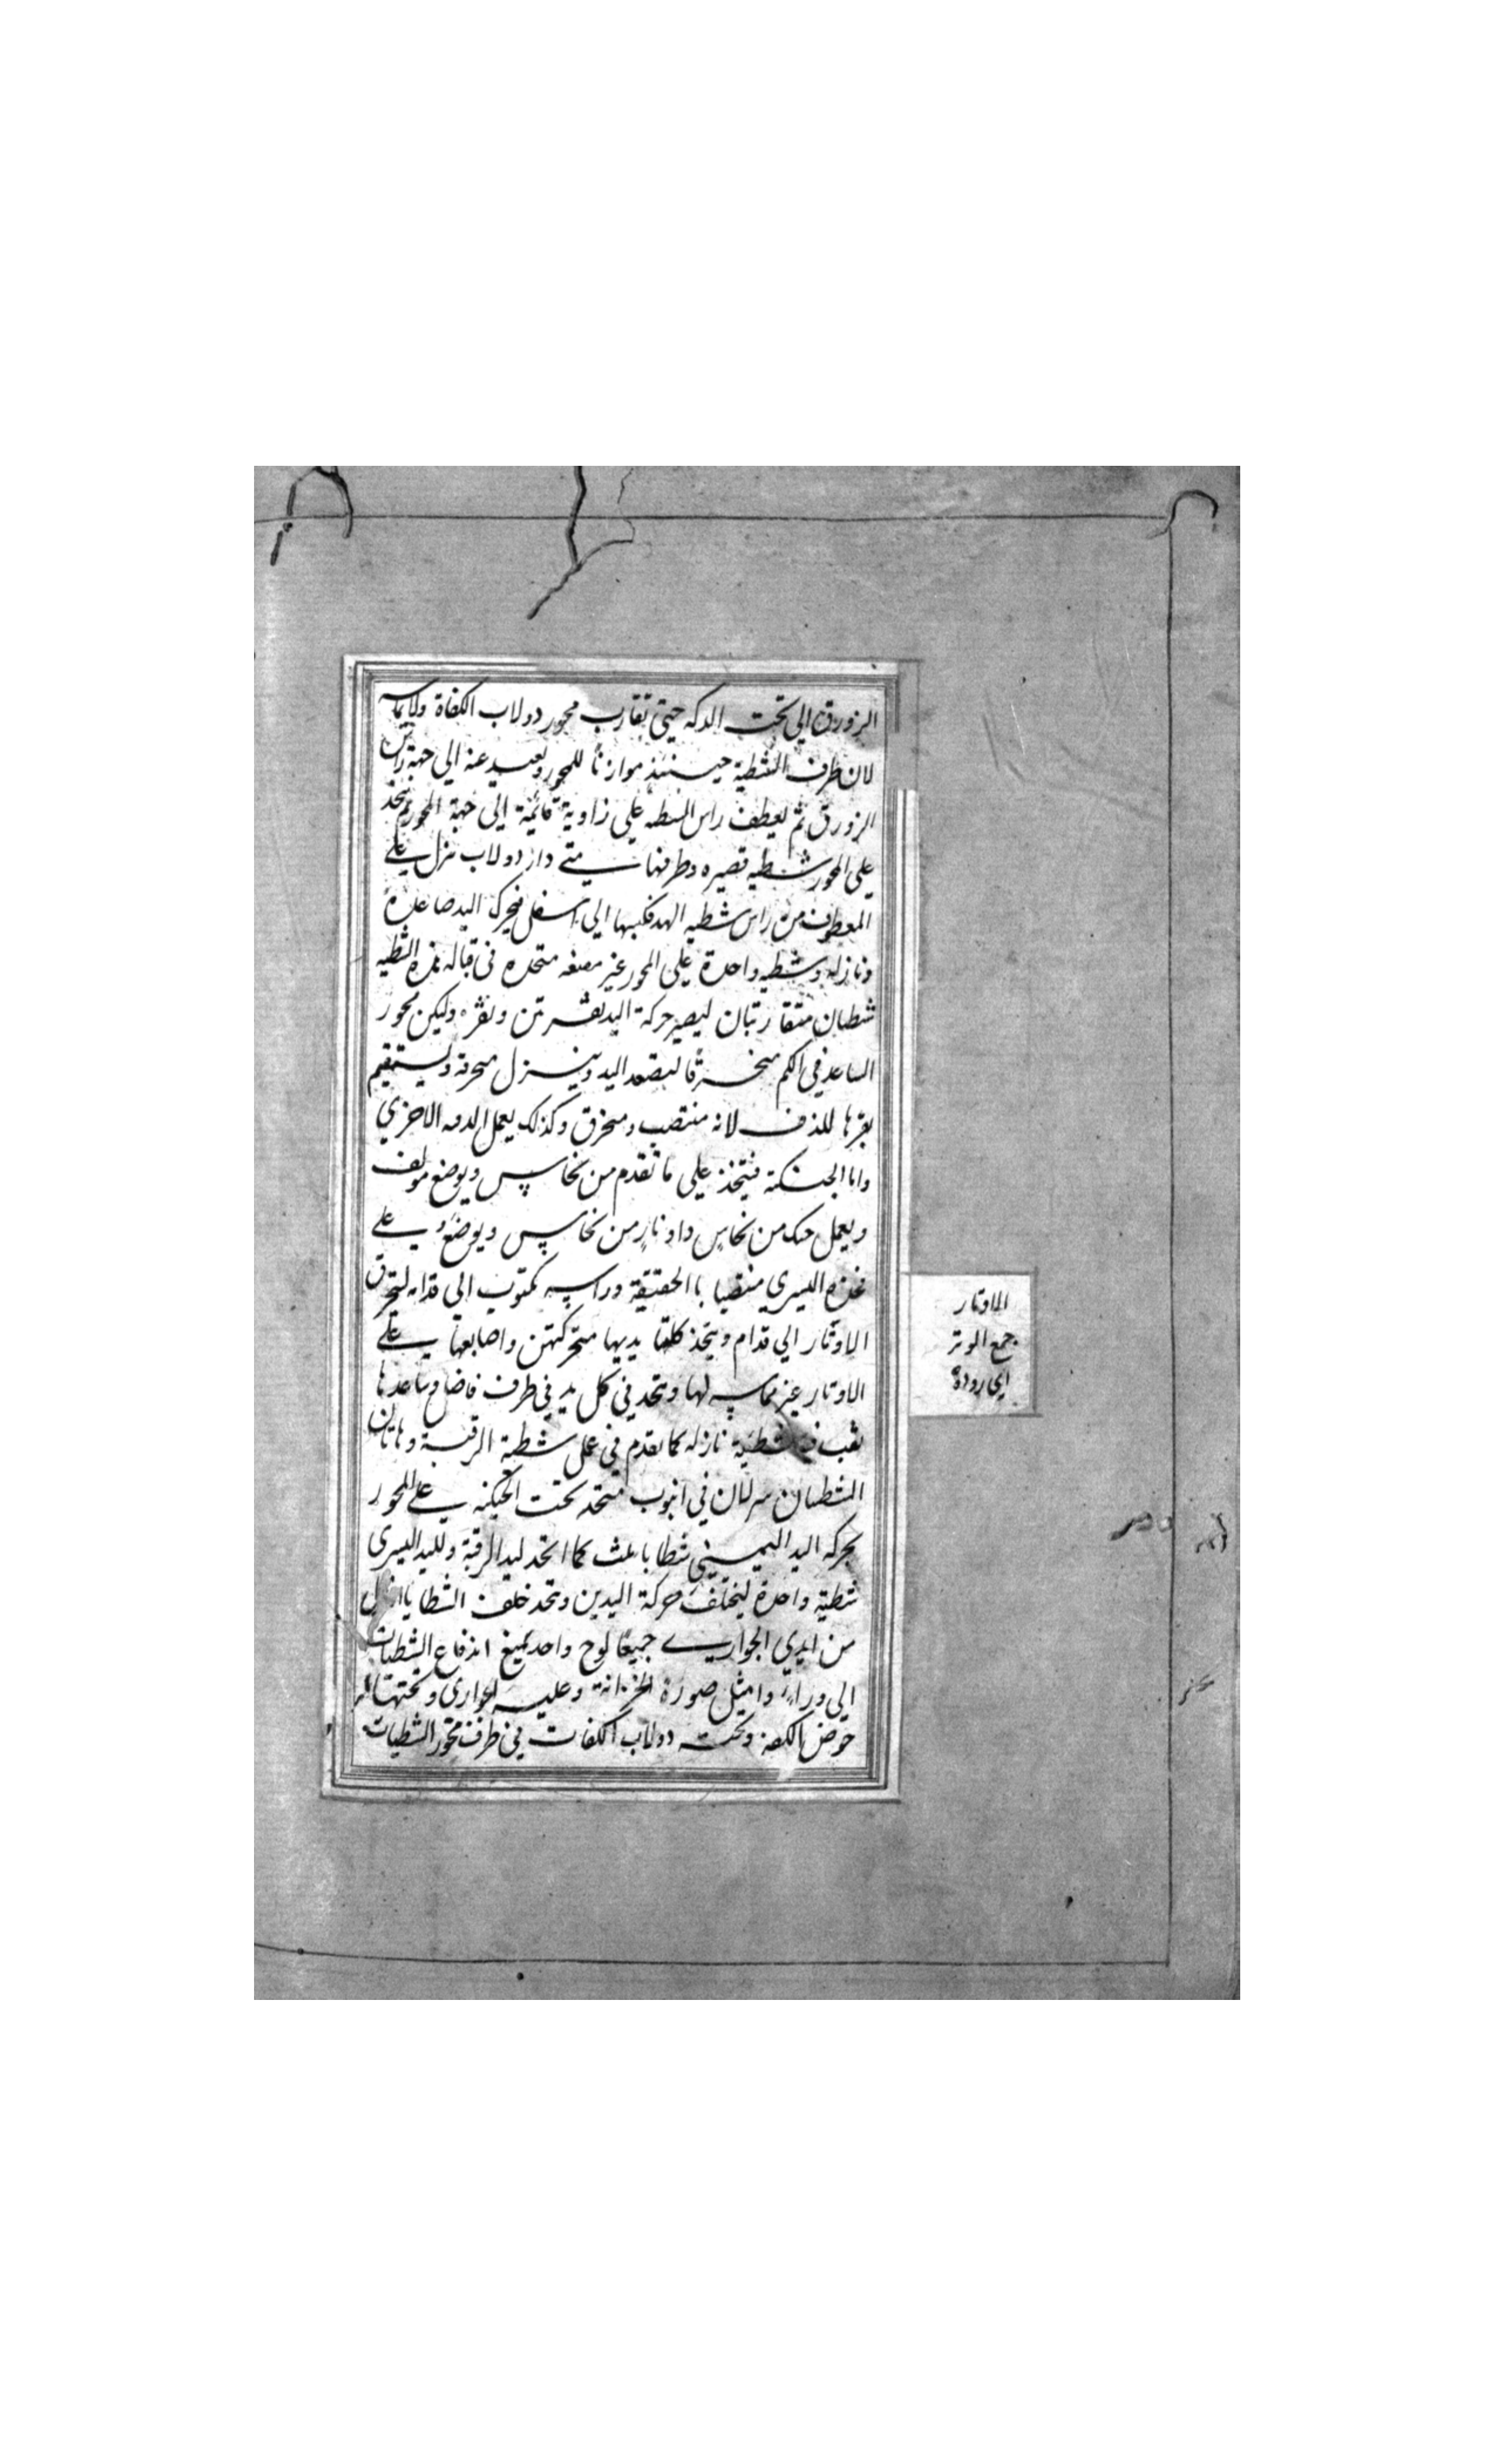 الزورق الي تحت الدكه حتي تقارب محور دولاب الكفاة ولايماسه
لان طرف الشطية حينئذ موازنا للمحور وبعيد عنه الي جهة راس
الزورق ثم يعطف راس الشطه علي زاوية قائمة الي جهة المحور ثم يتخذ
علي المحور شطيه قصيره وطرفها متي دار دولاب نزل علي
المعطوف من راس شطيه اليد فكبها الي اسفل فيحرك اليد صاعدة
ونازله وشطيه واحدة علي المحور غير متحده في قباله هذه الشطيه
شطيان متقاربتان ليصير حركة اليد نقرتين ونقره وليكن محور
الساعد في الكم منحرفا ليصعد اليد وينزل منحرفة ويستقيم
نقرها للدف لانه منتصب ومنحرف وكذلك يعمل الاخري
واما الجنكية فيتخذ علي ما تقدم من نحاس ويوضع
ويعمل جنك من نحاس واوتار من نحاس ويوضع علي
فخذه اليسري منتصبا بالحقيقة وراسه الي قدام
الاوتار الي قدام ويتخذ كلتا يديها متحركتين واصابعها علي
الاوتار غير مماسه لها ويتخذ في كل يد في طرف فاضل ساعدها
ثقب فيه شطية نازله كما تقدم في عمل شطية الرقبة وهاتان
الشطيان في انبوب متخذ تحت الجنكيه علي المحور
بحركه اليد اليميني شطايا ثلث كما اتخذ ليد الرقبة ولليد اليسري
شطية واحدة ليختلف حركة اليدين ويتخذ خلف الشطايا
من ايدي الجواري جميعا لوح واحد يمنع اندفاع الشطيات
الي وراء وامثل صورة الخزانة وعليه الجواري وتحتها
حوض الكفه وتحت دولاب الكفات في طرف محور الشطيات
الاوتار
جمع الوتر
اي روده